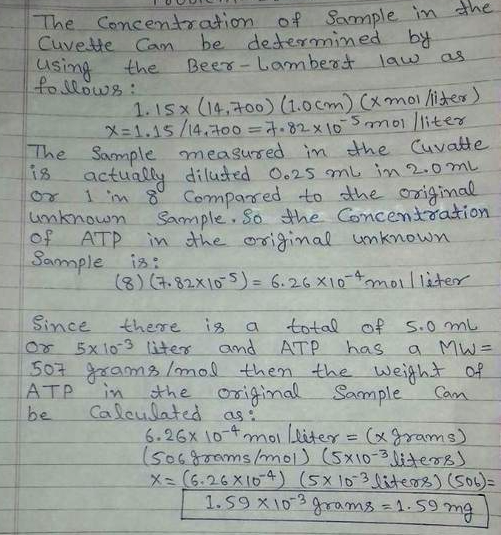 The Concentration of Sample in the
Cuvette Can be determined by
using the Beer-Lambert law as
follows:
1.15 x (14,700) (1.0cm) (x mol/liter)
x=1.15/14,700 = 7.82 x 10⁻⁵ mol/liter
The Sample measured in the Cuvatte
is actually diluted 0.25 mL in 2.0 mL
or 1 in 8 Compared to the original
unknown Sample. So the Concentration
of ATP in the original unknown
Sample is:
(8) (7.82x10⁻⁵) = 6.26 x10⁻⁴ mol/liter
Since there is a total of 5.0 mL
or 5x10⁻³ liter and ATP has a MW=
507 grams/mol then the weight of
ATP in the original Sample Can
be Calculated as:
6.26x 10⁻⁴ mol/liter = (x grams)
(506 grams/mol) (5x10⁻³ liters)
x= (6.26 x10⁻⁴) (5x10⁻³ liters) (506)=
1.59 x 10⁻³ grams = 1.59 mg